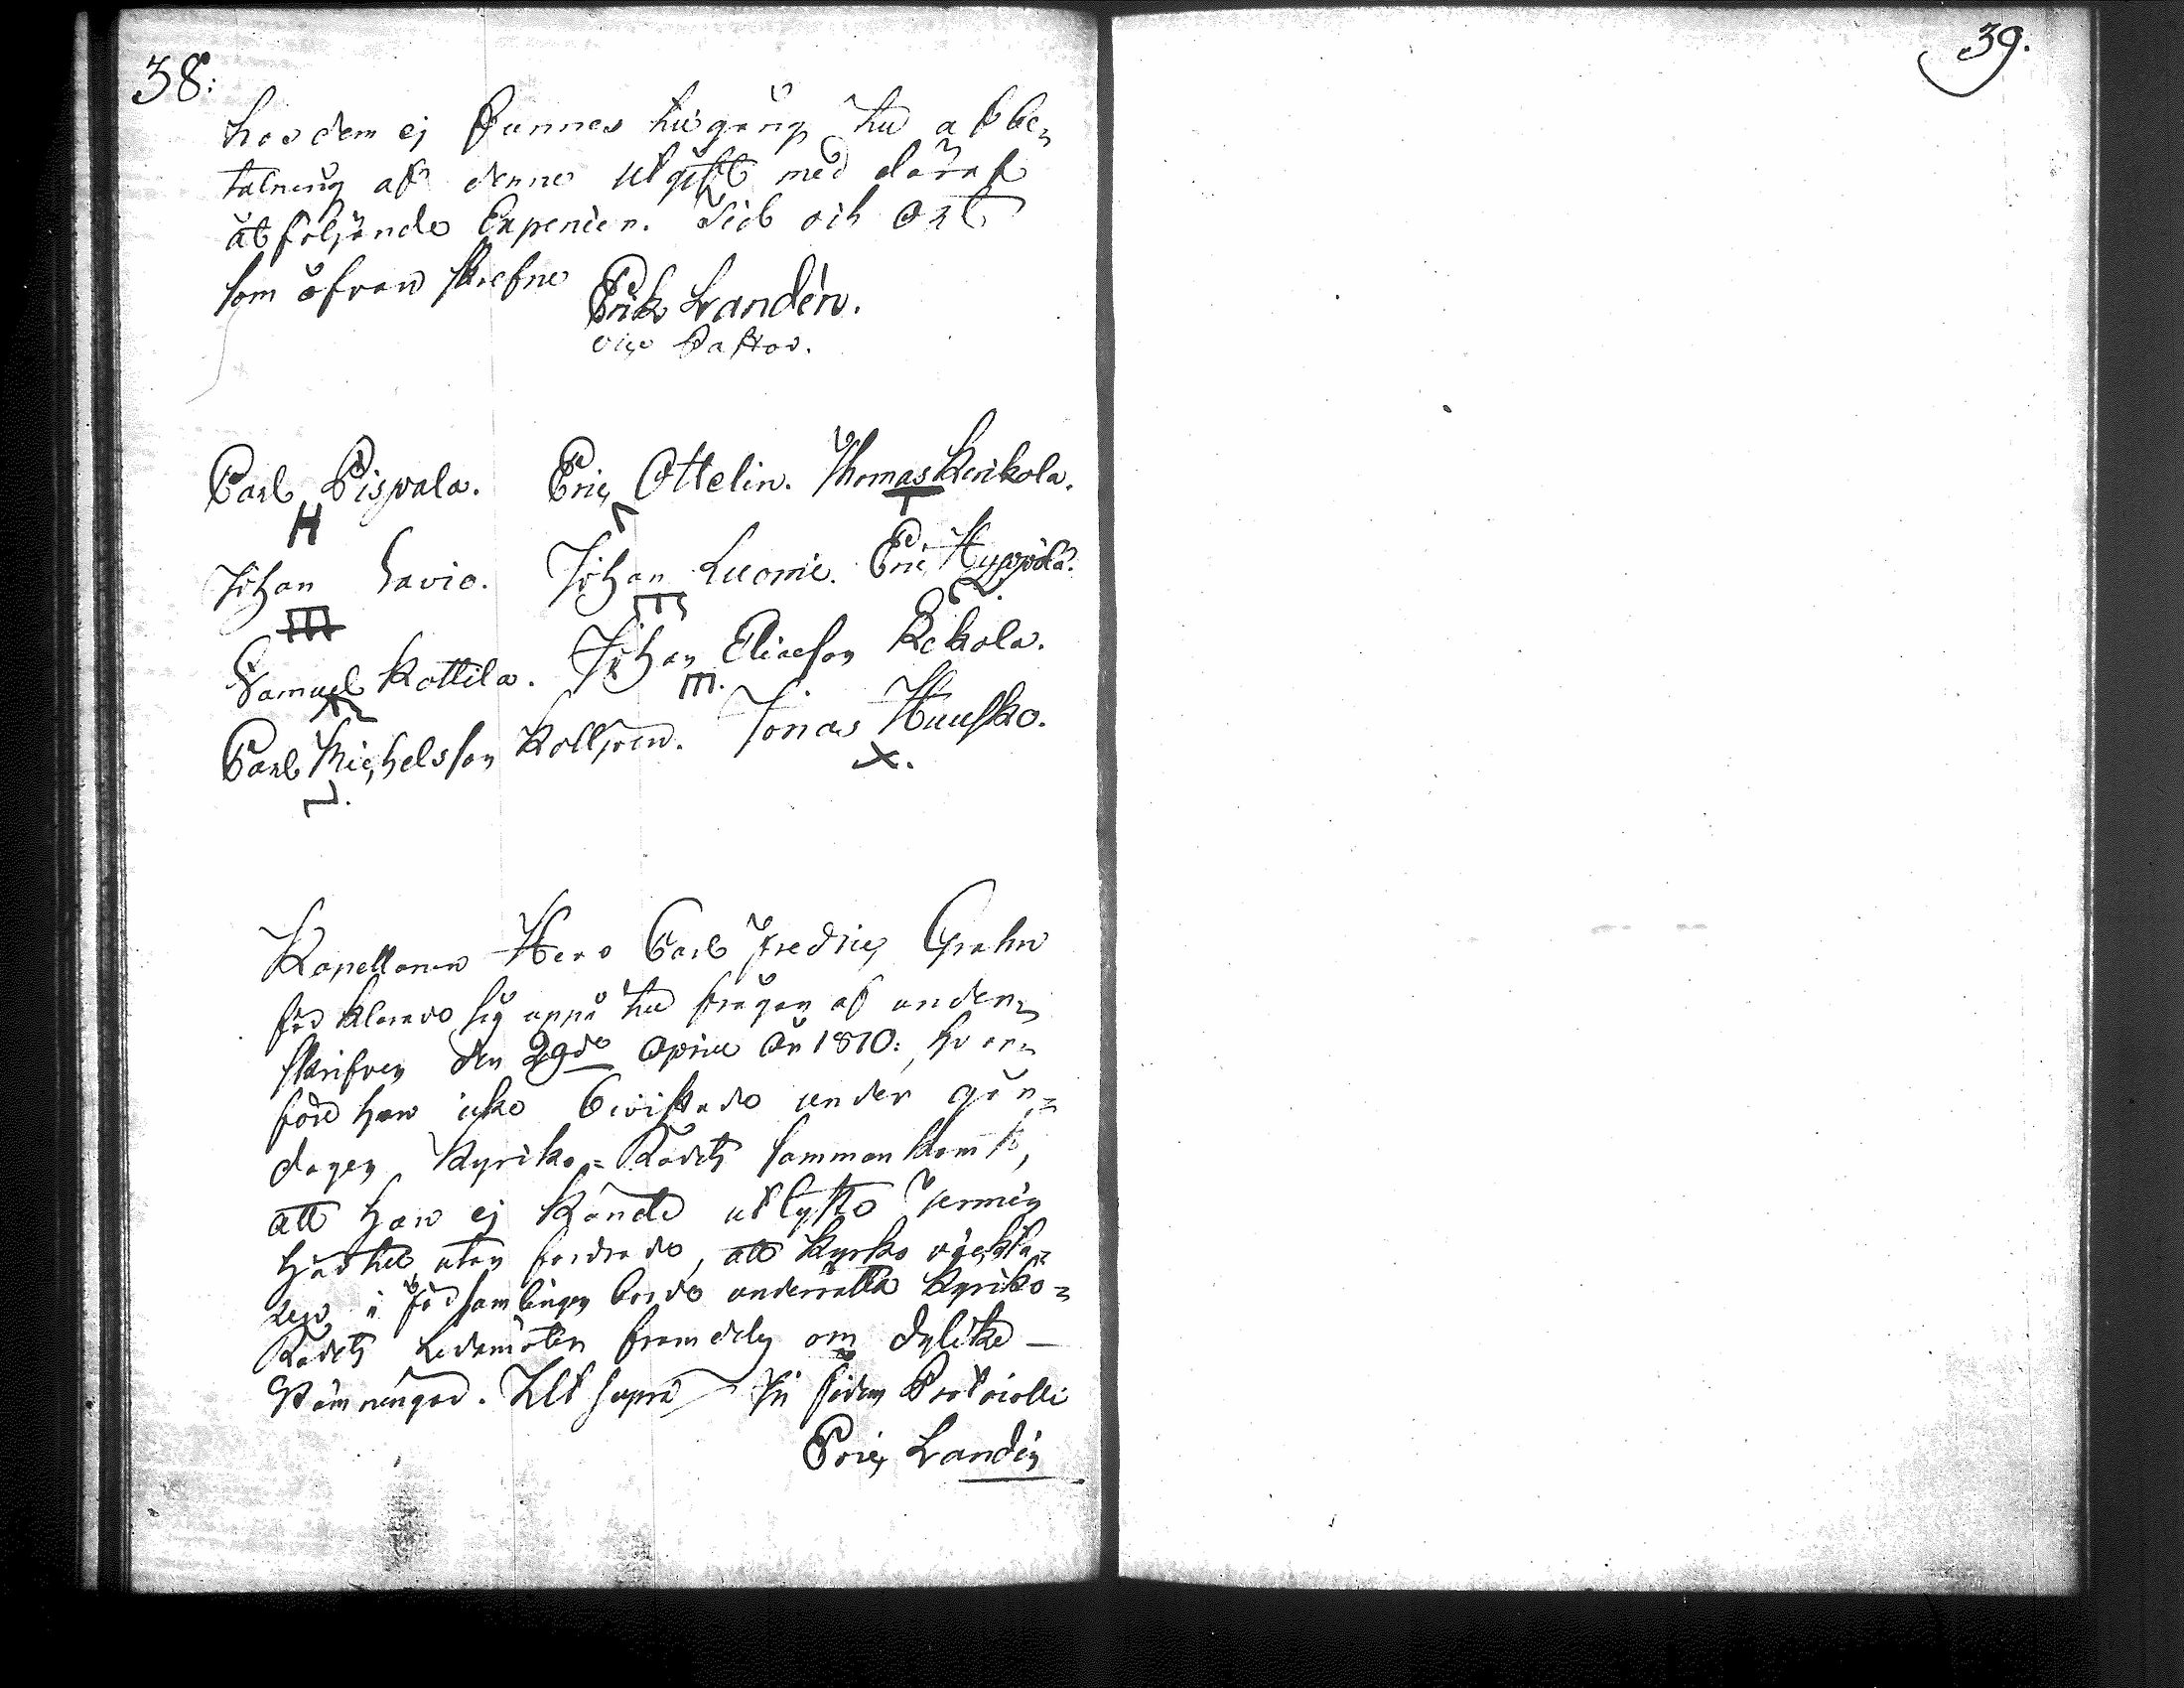 38:
hos dem ej funnes tilgång til afbe-
talning af denne utgift med däraf
åtföljande Expencer. Tid och Ort
som ofvan skrefne
Erik Landén.
vice Pastor.
Carl Pispala. Eric Ottelin. Thomas Kerikola.
Johan Savio. Johan Luomi. Eric Hyppölä.
Samuel Kottila. Johan Eliaeson Rekola.
Carl Michelsson Jonas Huusko.
Kapellanen Herr Carl Fredric Grahn
förklarade sig uppå til frågan af under-
skrifven den 29de April År 1810:, hvar-
före han icke bivistade under går-
dagen Kyriko-Rådets sammankomst,
att han ej kände utlyste
härtil, utan fordrade, att Kyrko
i Församlingen borde underrätta Kyriko-
Rådets Ledamöter framdeles om dylike
Stämningar. Ut supra In fidem Protocolli
Eric Landén
39.